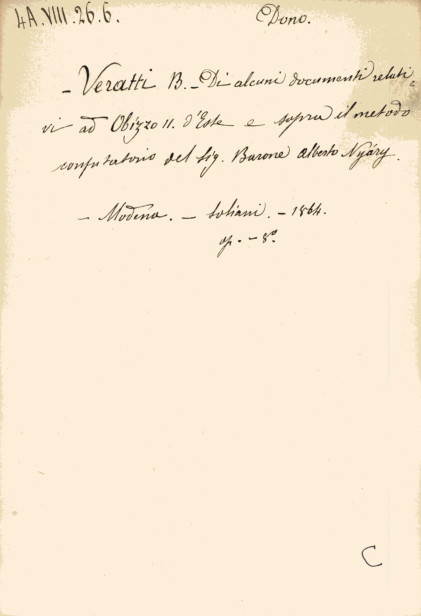 4A.VIII.26.6.
Dono.
- Veratti B. - Di alcuni documenti relati-
vi ad Obizzo II. d'Este e sopra il metodo
confutatorio del Sig. Barone Alberto Nyáry.
- Modena. - Soliani. - 1864.
op. - 8º.
C